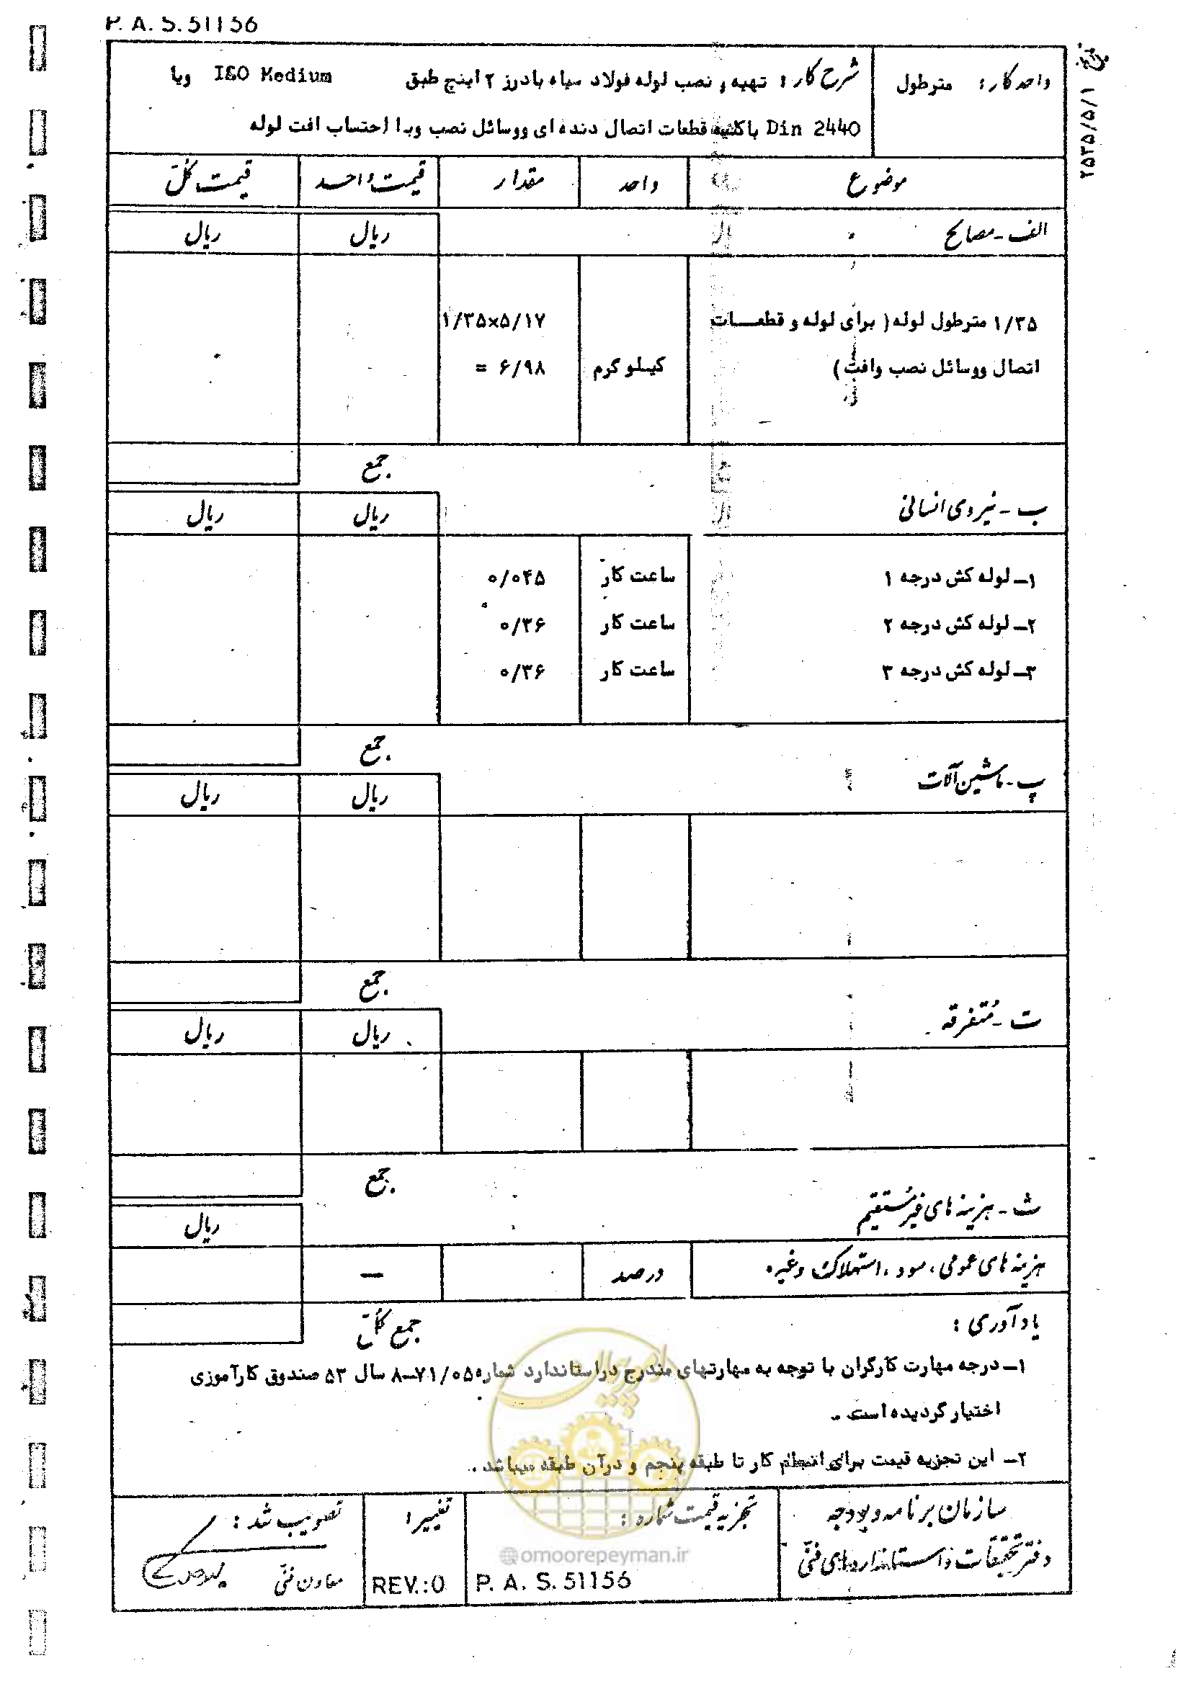 P. A. S. 51156
تاریخ ۲۵۳۵/۵/۱
واحد کار : مترطول
شرح کار : تهیه و نصب لوله فولاد سیاه بادرز ۲ اینچ طبق ISO Medium ویا
Din 2440 باکلیه قطعات اتصال دنده ای ووسائل نصب وبا احتساب افت لوله
موضوع واحد مقدار قیمت واحد قیمت کل
الف - مصالح ریال ریال
۱/۳۵ مترطول لوله ( برای لوله و قطعـــات ۱/۳۵×۵/۱۷
اتصال ووسائل نصب وافت ) کیلو گرم = ۶/۹۸
جمع
ب - نیروی انسانی ریال ریال
۱ـ لوله کش درجه ۱ ساعت کار ۰/۰۴۵
۲ـ لوله کش درجه ۲ ساعت کار ۰/۳۶
۳ـ لوله کش درجه ۳ ساعت کار ۰/۳۶
جمع
پ - ماشین آلات ریال ریال
جمع
ت - متفرقه ریال ریال
جمع
ث - هزینه های غیرمستقیم ریال
هزینه های عمومی ، سود ، استهلاک وغیره درصد —
یادآوری : جمع کل
۱ـ درجه مهارت کارگران با توجه به مهارتهای مندرج دراستاندارد شماره ۸ـ۷۱/۰۵ سال ۵۳ صندوق کارآموزی
اختیار گردیده است .
۲ـ این تجزیه قیمت برای انجام کار تا طبقه پنجم و درآن طبقه میباشد .
سازمان برنامه وبودجه
دفتر تحقیقات و استانداردهای فنی
تجزیه قیمت شماره :
P. A. S. 51156
تغییر :
REV.:0
تصویب شد :
معاون فنی
امور پیمان
@omoorepeyman.ir